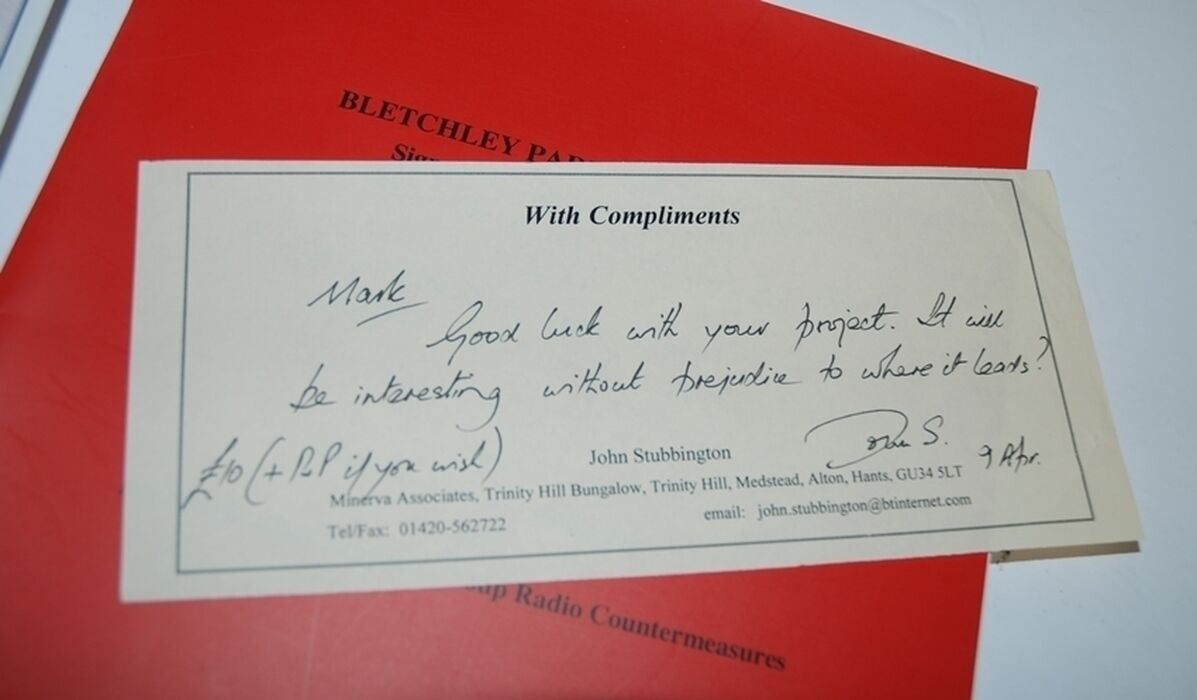 BLETCHLEY PAR
Sig
With Compliments
Mark
Good luck with your project. It will
be interesting without prejudice to where it leads?
£10 (+ P&P if you wish)
John S. 9 Apr.
John Stubbington
Minerva Associates, Trinity Hill Bungalow, Trinity Hill, Medstead, Alton, Hants, GU34 5LT
Tel/Fax: 01420-562722
email: john.stubbington@btinternet.com
up Radio Countermeasures